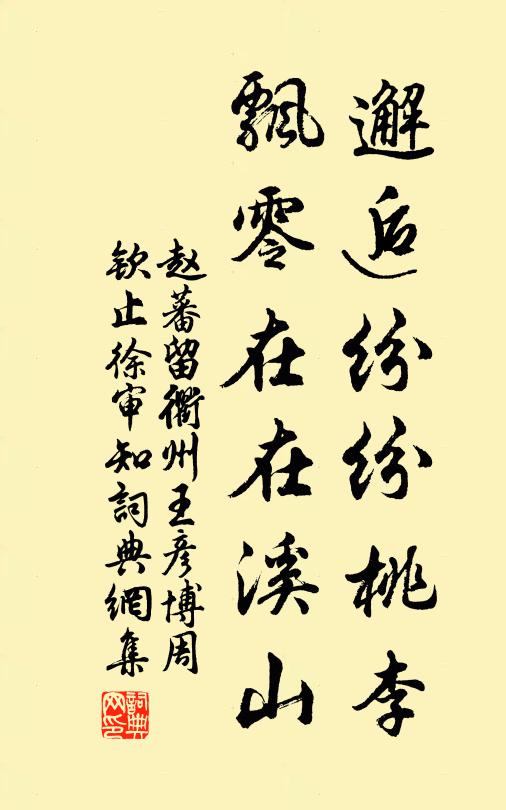 邂逅纷纷桃李
飘零在在溪山
赵蕃留衢州王彦博周
钦止徐审知詞典網集
詞典网印